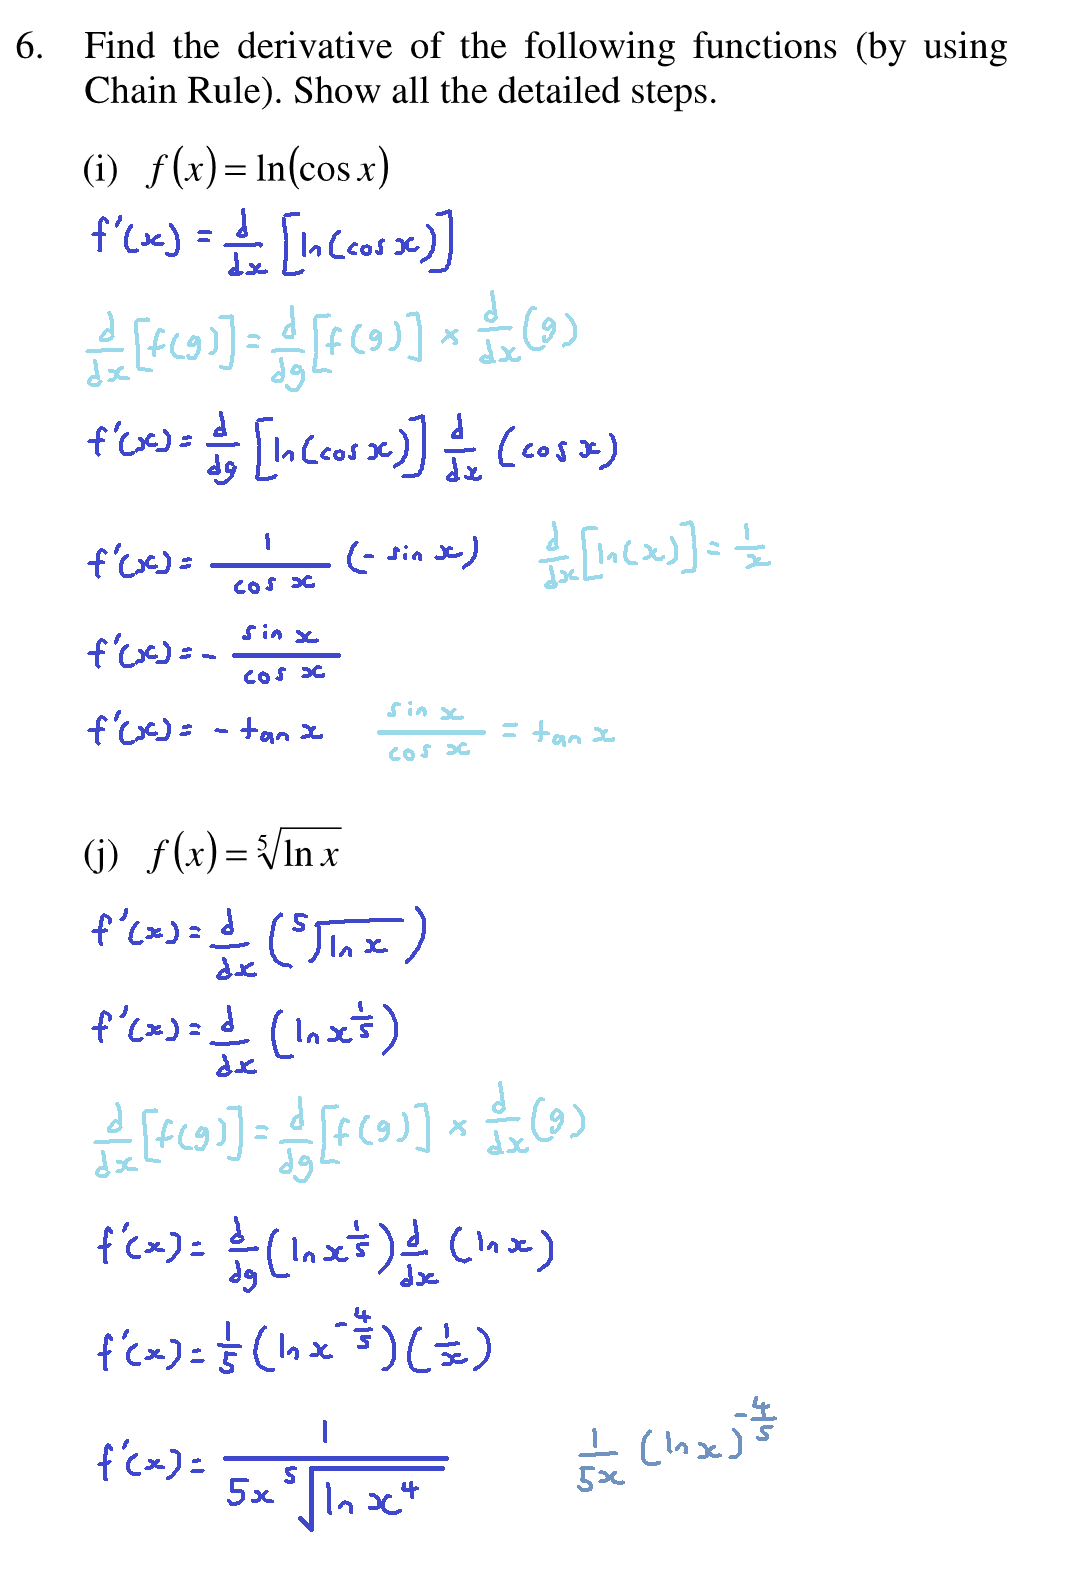 6. Find the derivative of the following functions (by using
Chain Rule). Show all the detailed steps.
(i) f(x) = ln(cos x)
f'(x) = d/dx [ln(cos x)]
d/dx [f(g)] = d/dg [f(g)] × d/dx (g)
f'(x) = d/dg [ln(cos x)] d/dx (cos x)
f'(x) = 1/(cos x) (- sin x)   d/dx [ln(x)] = 1/x
f'(x) = - (sin x)/(cos x)
f'(x) = - tan x   (sin x)/(cos x) = tan x
(j) f(x) = ⁵√(ln x)
f'(x) = d/dx (⁵√(ln x))
f'(x) = d/dx (ln x^(1/5))
d/dx [f(g)] = d/dg [f(g)] × d/dx (g)
f'(x) = d/dg (ln x^(1/5)) d/dx (ln x)
f'(x) = 1/5 (ln x^(-4/5)) (1/x)
f'(x) = 1/(5x ⁵√(ln x⁴))   1/(5x) (ln x)^(-4/5)